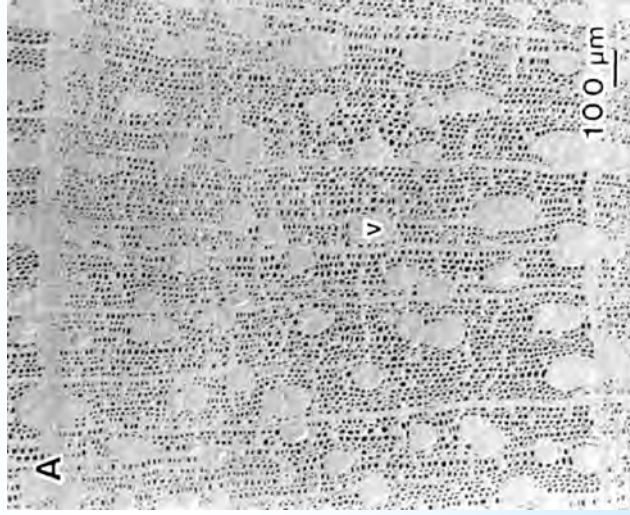 A
v
100 µm